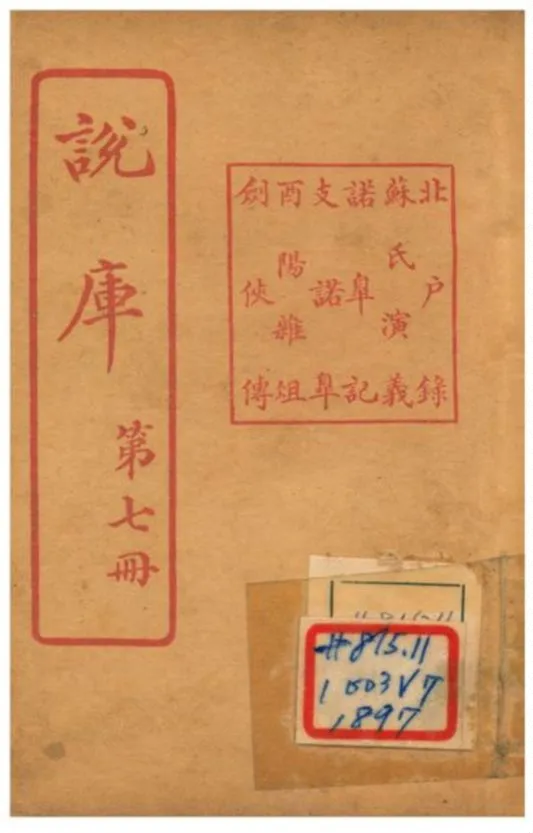 說庫
第七冊
北户錄
蘇氏演義
諾皐記
支諾皐
酉陽雜俎
劍俠傳
#815.11
1003V7
1897